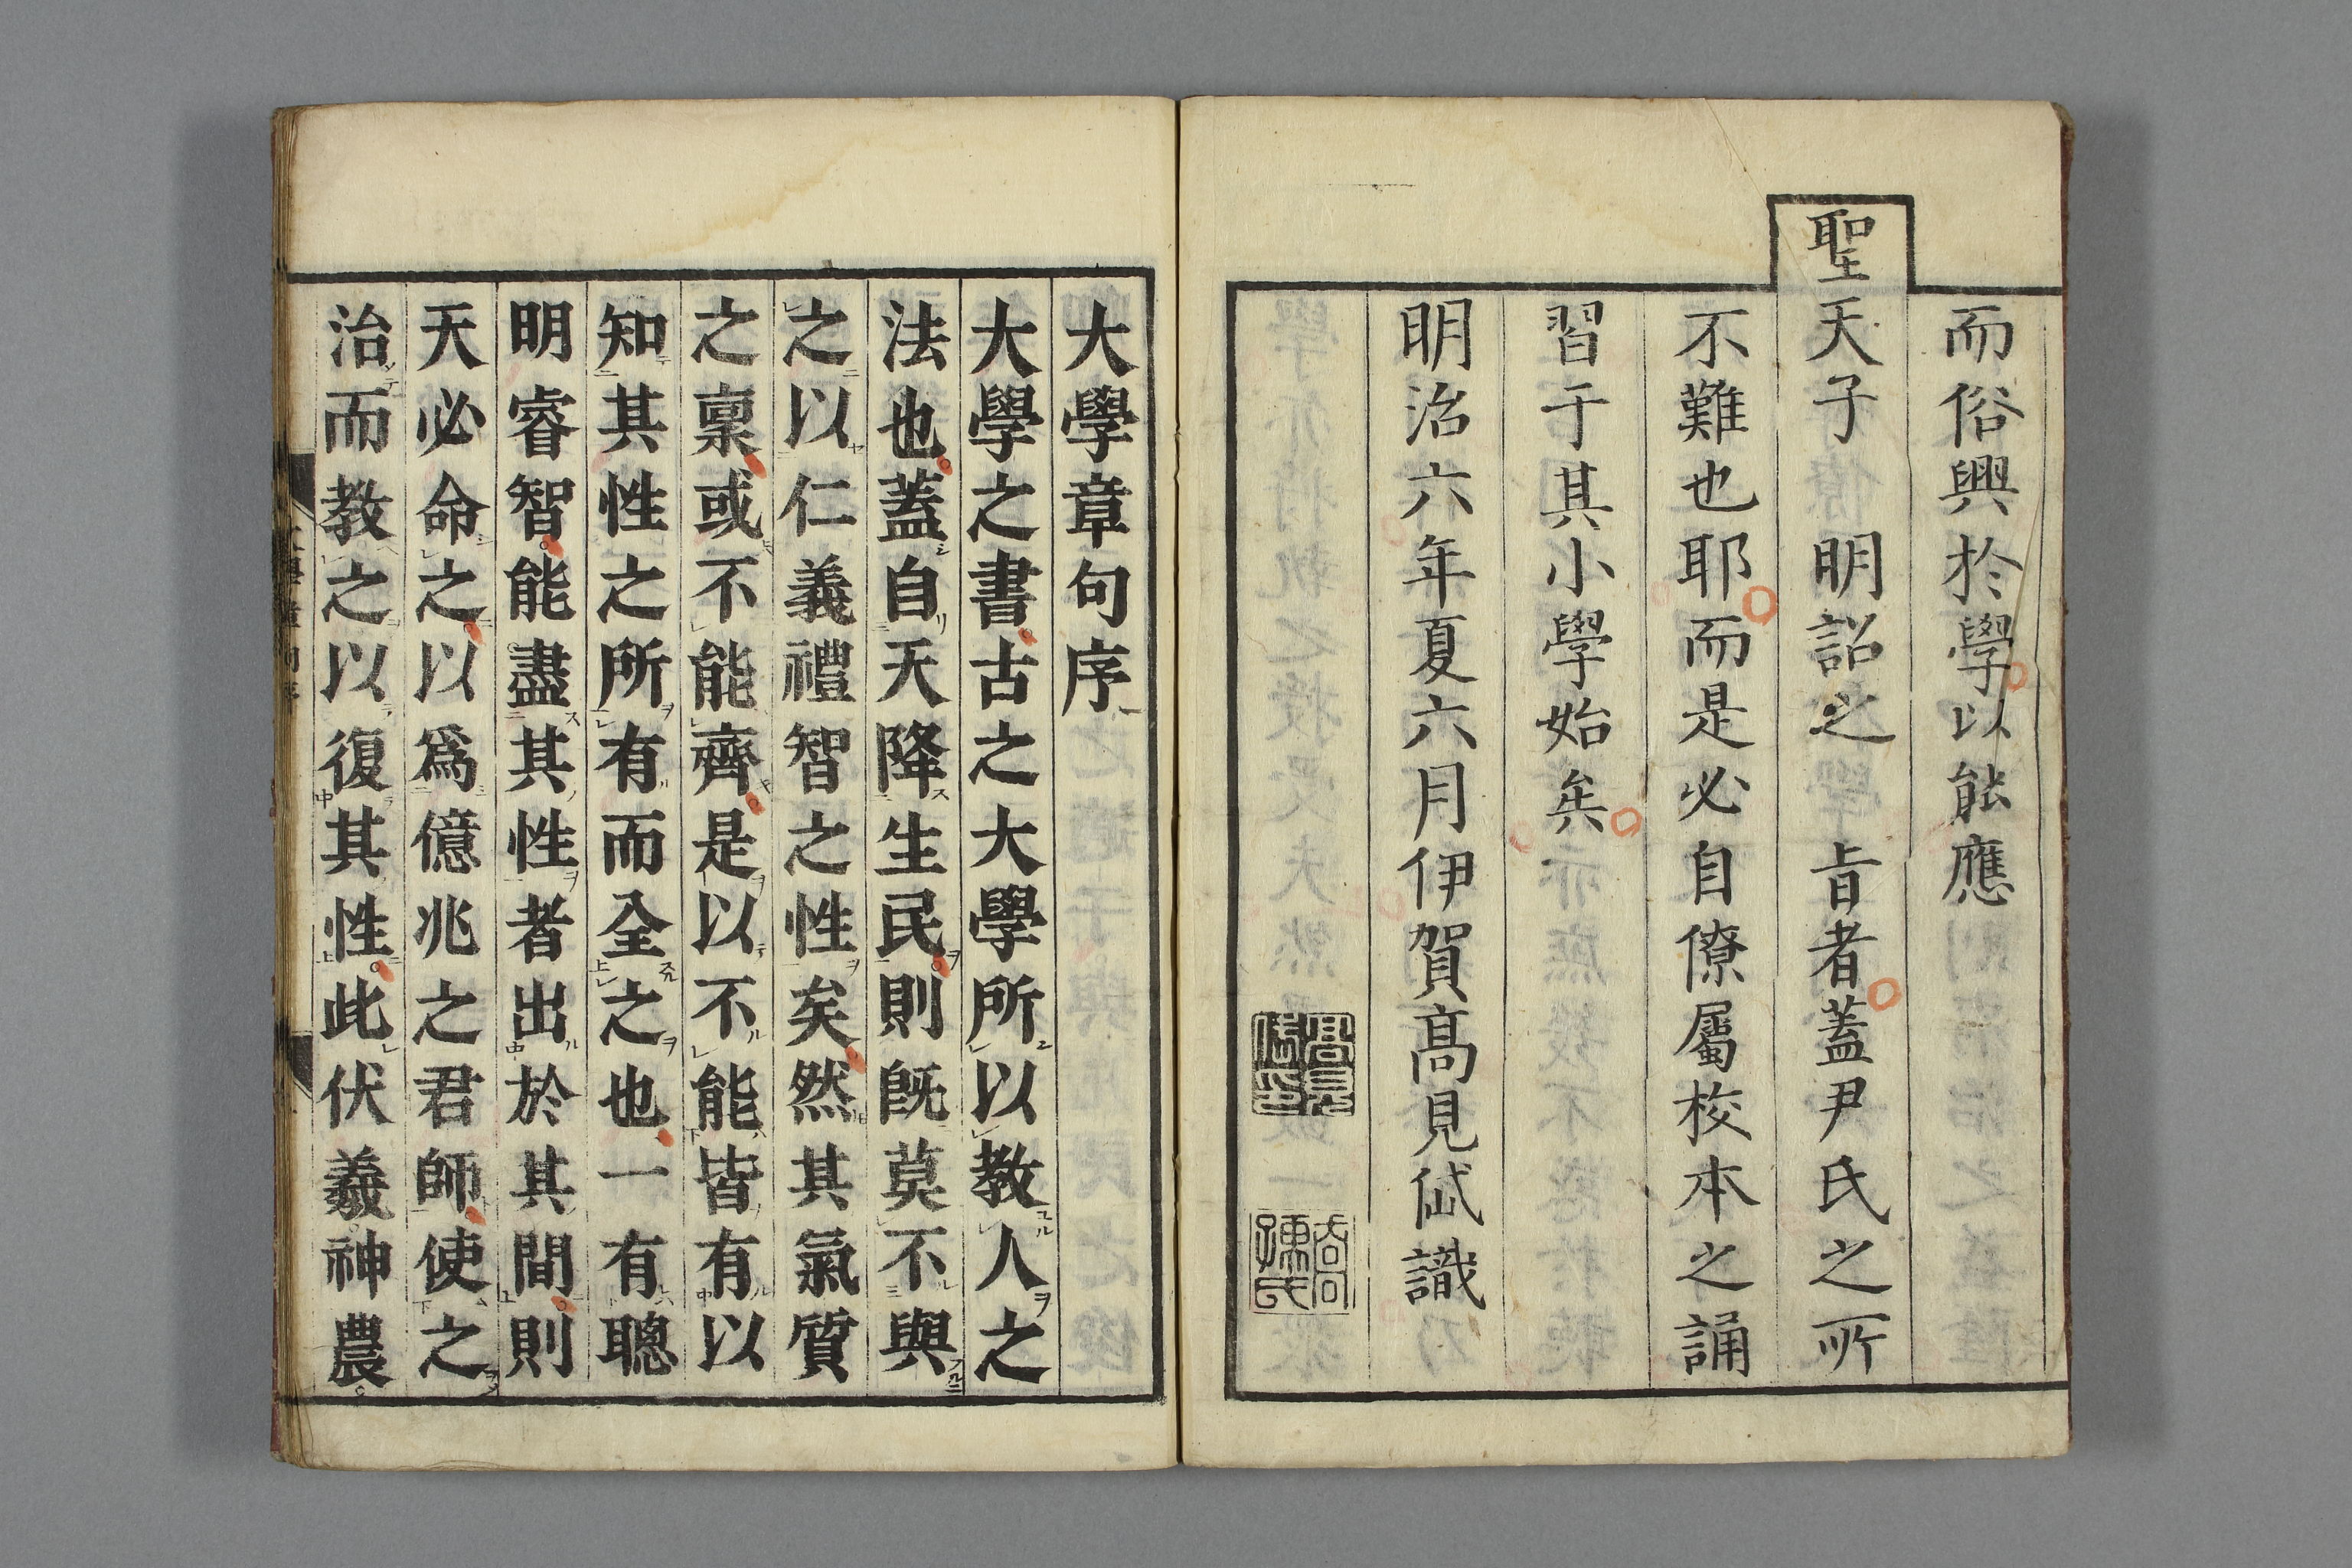 而俗興於學以能應
聖天子 明詔之 旨者蓋尹氏之所
不難也耶而是必自僚屬校本之誦
習于其小學始矣
明治六年夏六月伊賀高見㑀識
大學章句序
大學之書古之大學所以教人之
法也蓋自天降生民則既莫不與
之以仁義禮智之性矣然其氣質
之稟或不能齊是以不能皆有以
知其性之所有而全之也一有聰
明睿智能盡其性者出於其間則
天必命之以爲億兆之君師使之
治而教之以復其性此伏羲神農